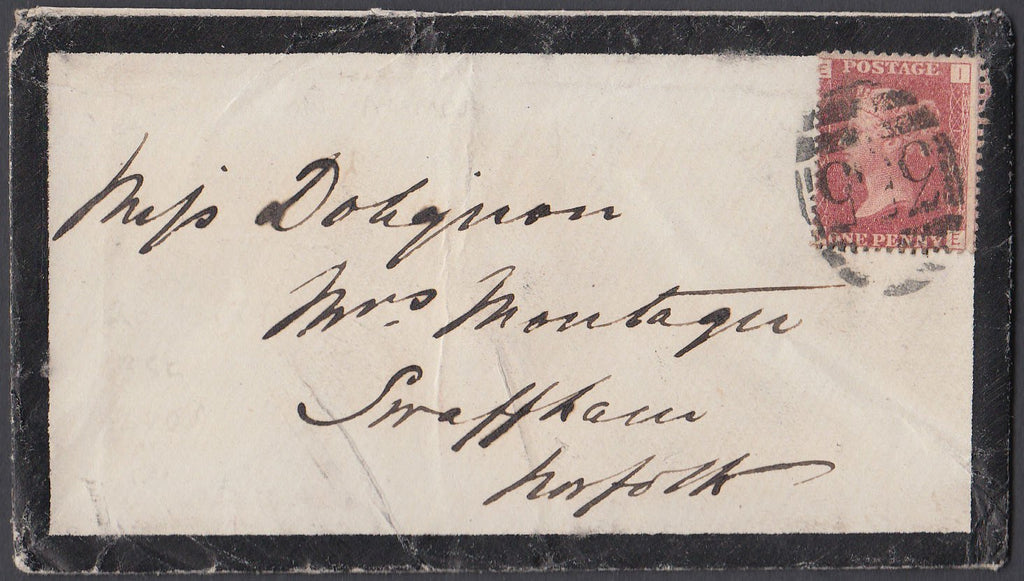 E POSTAGE I
ONE PENNY E
Miss Dobignon
Mrs Montagu
Swaffham
Norfolk